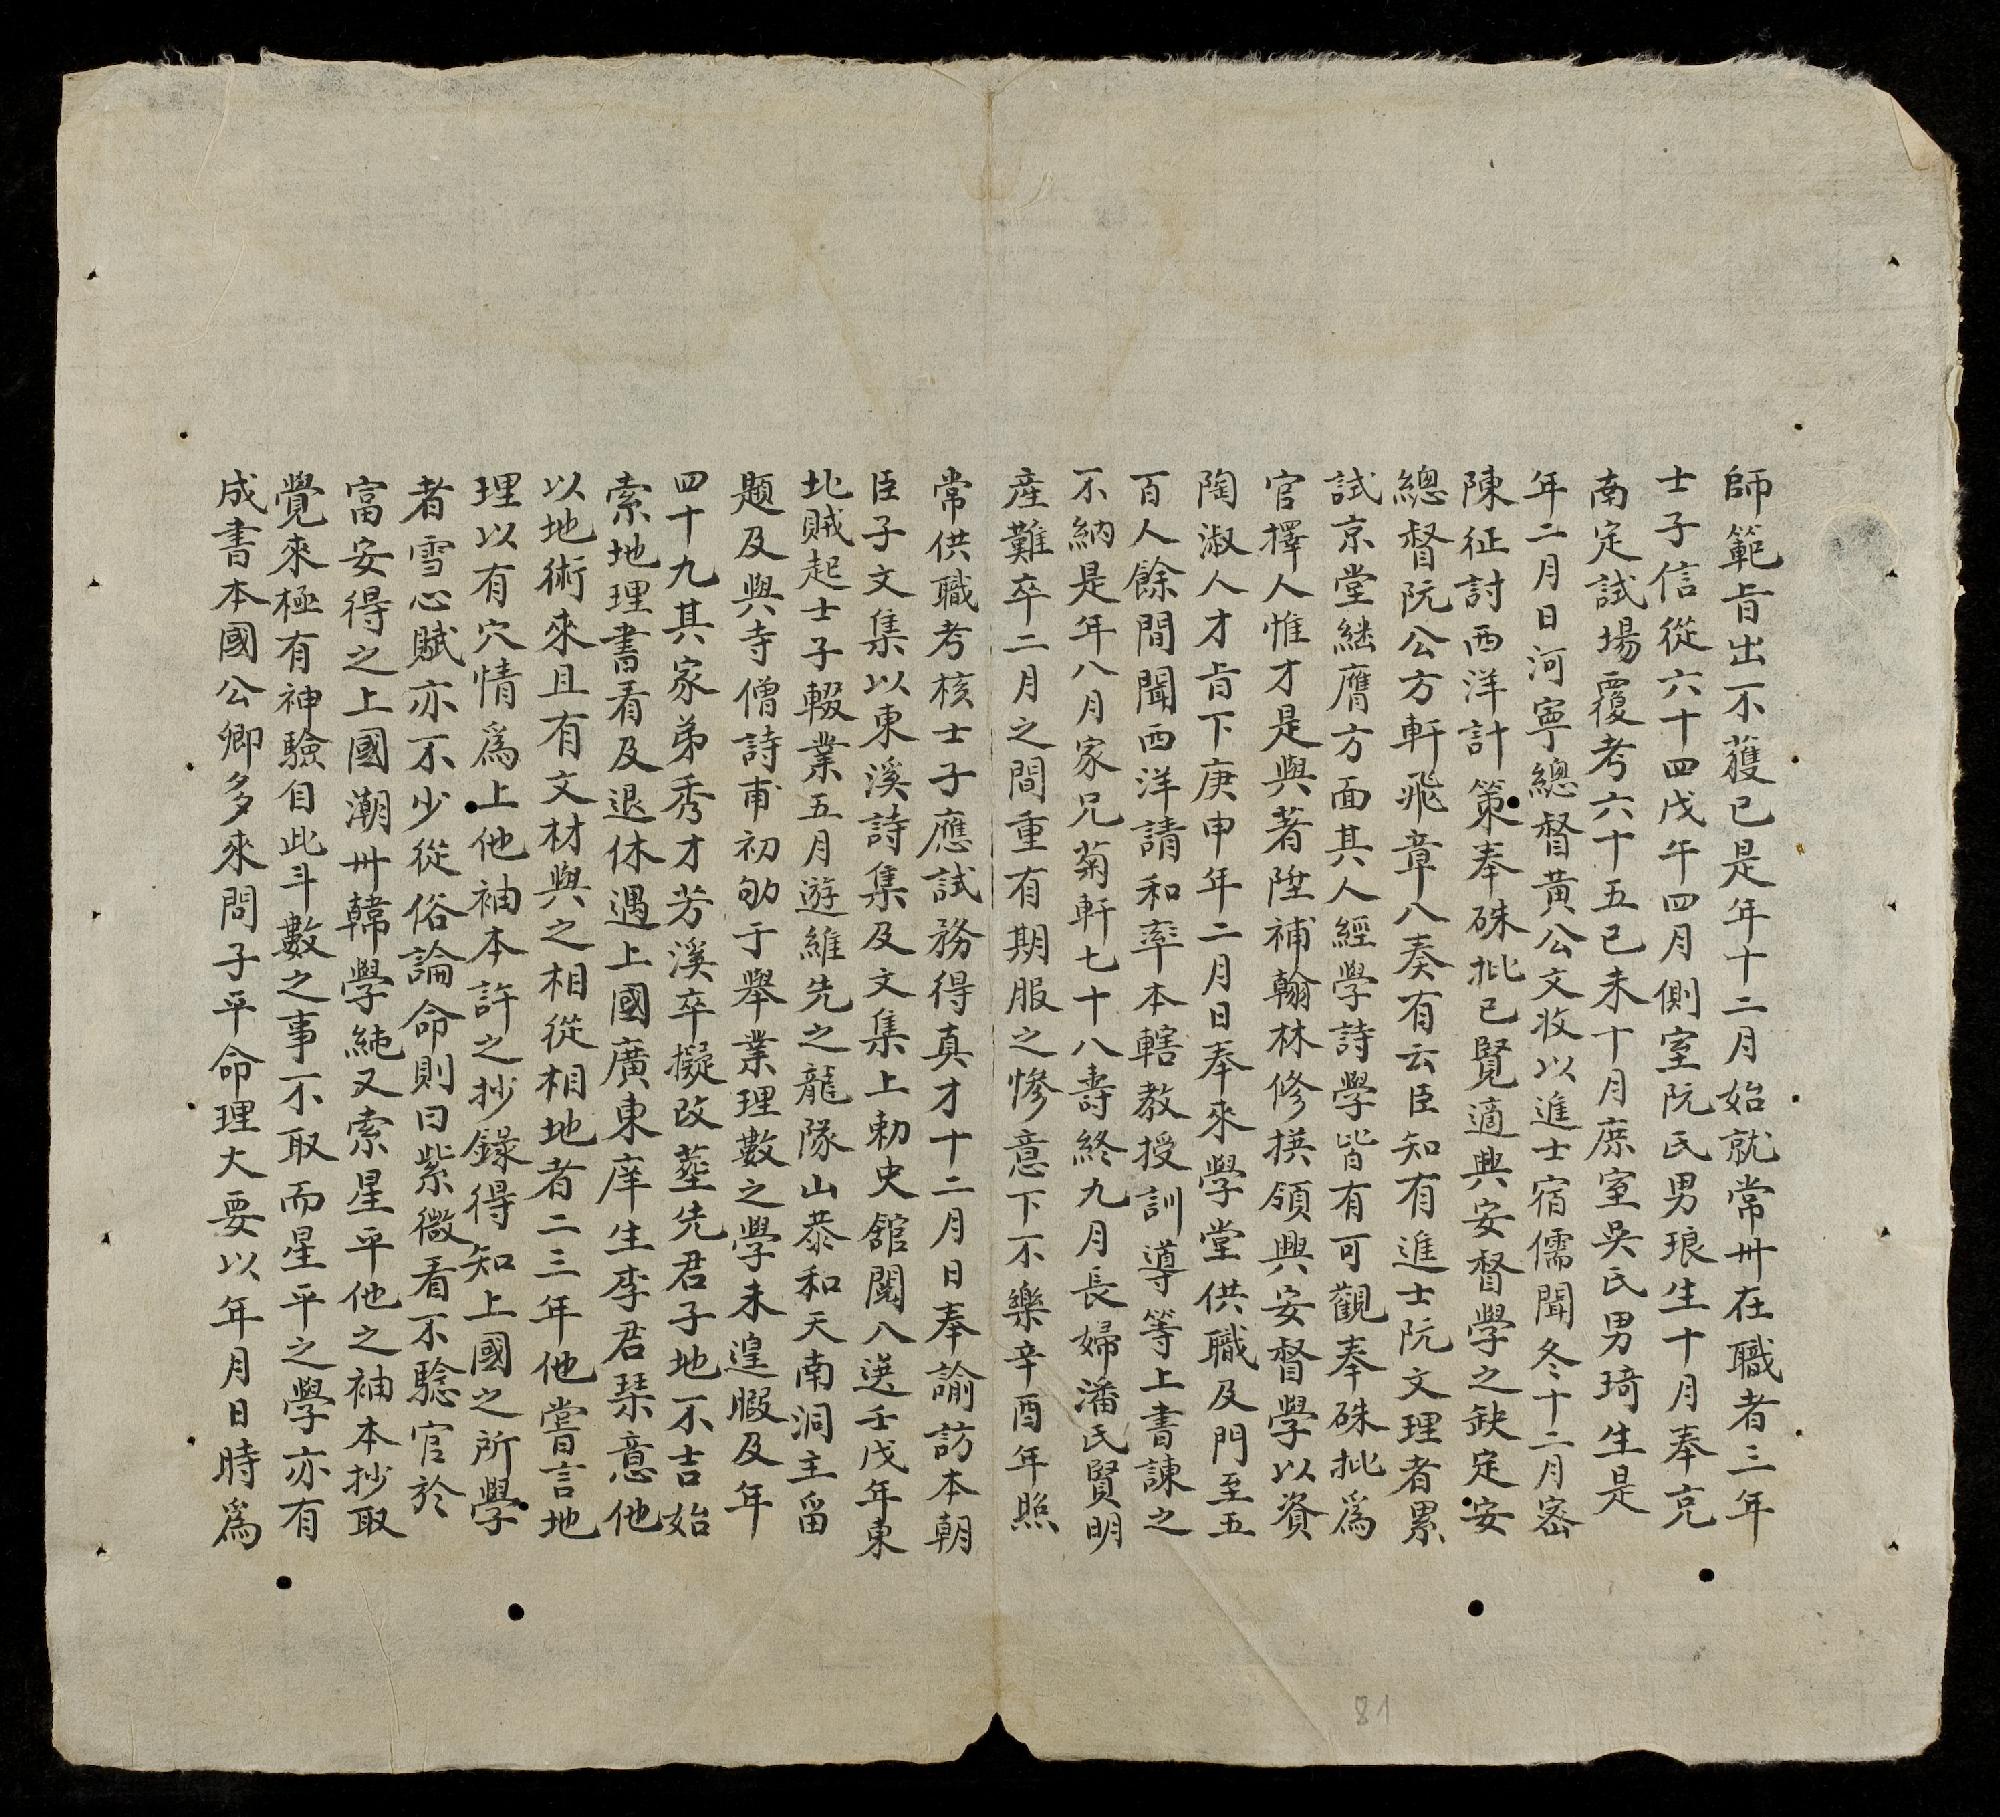 師範旨出不獲已是年十二月始就常卅在職者三年
士子信從六十四戊午四月側室阮氏男琅生十月奉充
南定試場覆考六十五己未十月庶室吳氏男琦生是
年二月日河寧總督黃公文收以進士宿儒聞冬十二月密
陳征討西洋計策奉硃批已覽適興安督學之缺定安
總督阮公方軒飛章入奏有云臣知有進士阮文理者累
試京堂継膺方面其人經學詩學皆有可觀奉硃批爲
官擇人惟才是與著陞補翰林修撰領興安督學以資
陶淑人才旨下庚申年二月日奉來學堂供職及門至五
百人餘間聞西洋請和率本轄教授訓導等上書諫之
不納是年八月家兄菊軒七十八壽終九月長婦潘氏賢明
產難卒二月之間重有期服之慘意下不樂辛酉年照
常供職考核士子應試務得真才十二月日奉諭訪本朝
臣子文集以東溪詩集及文集上勅史舘閱入選壬戌年東
北賊起士子輟業五月遊維先之龍隊山恭和天南洞主畄
題及與寺僧詩甫初幼于舉業理數之學未遑暇及年
四十九其家弟秀才芳溪卒擬改塟先君子地不吉始
索地理書看及退休遇上國廣東庠生李君琹意他
以地術來且有文材與之相從相地者二三年他嘗言地
理以有穴情爲上他袖本許之抄錄得知上國之所學
者雪心賦亦不少從俗論命則曰紫微看不騐官於
富安得之上國潮卅韓學純又索星平他之袖本抄取
覺來極有神驗自此斗數之事不取而星平之學亦有
成書本國公卿多來問子平命理大要以年月日時爲
81